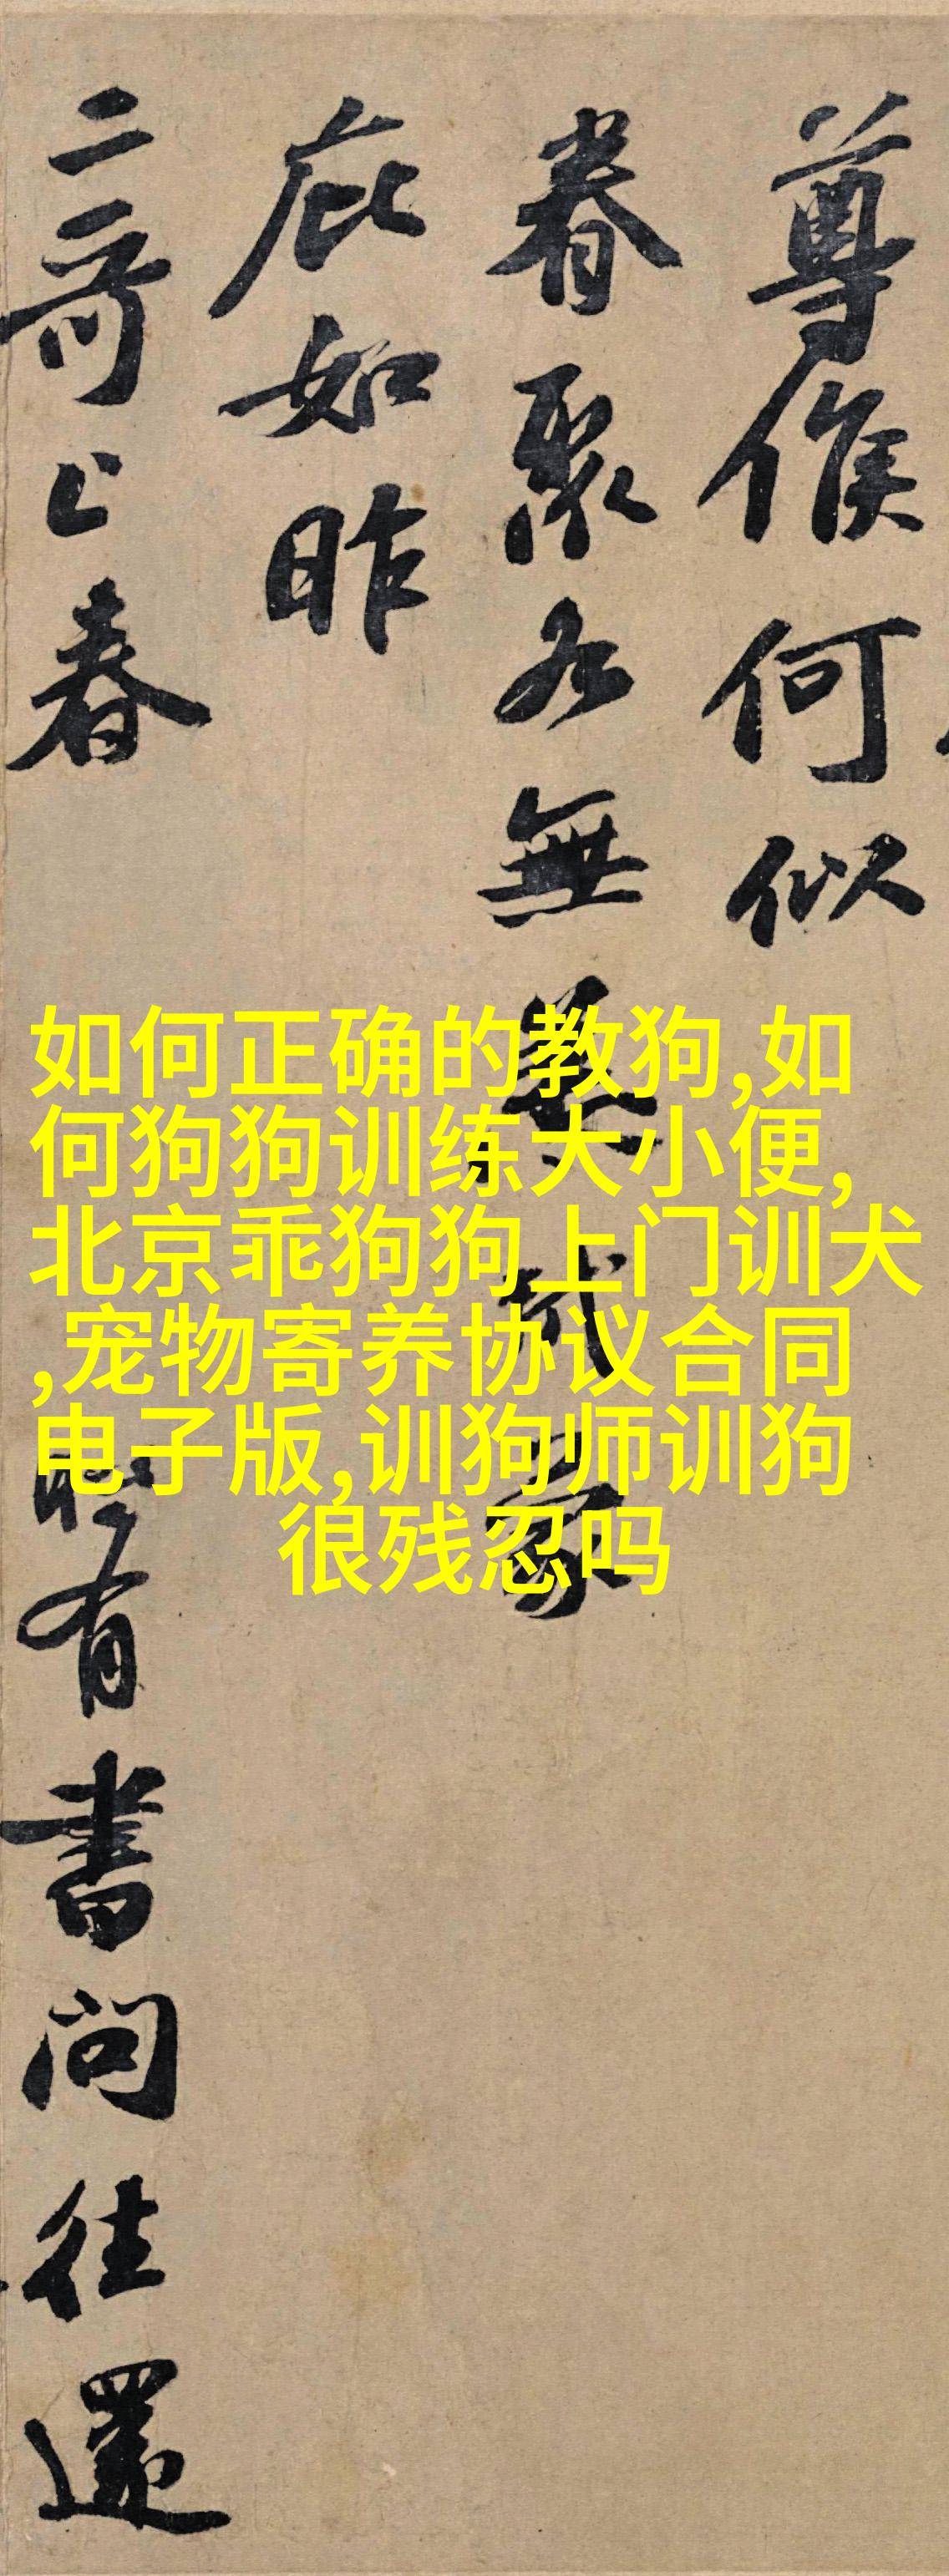 尊候何似
眷聚各無恙試蒙
庇如昨
二哥上春
有書問往還
如何正确的教狗,如
何狗狗训练大小便,
北京乖狗狗上门训犬
,宠物寄养协议合同
电子版,训狗师训狗
很残忍吗